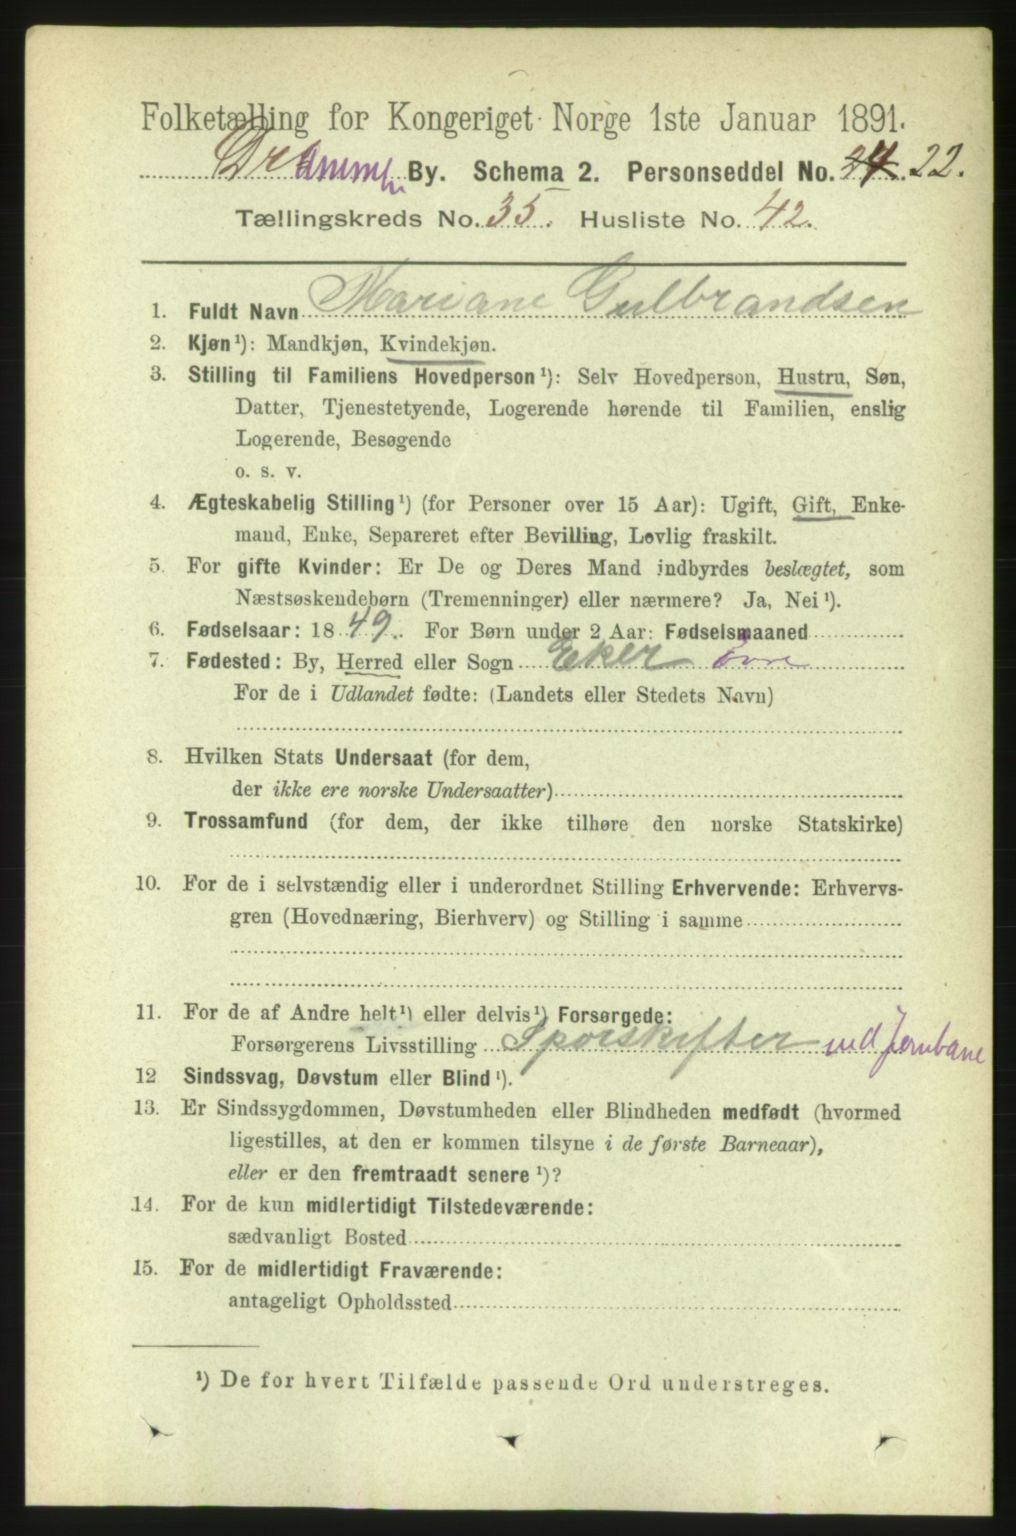 Folketælling for Kongeriget Norge 1ste Januar 1891.
Drammen By. Schema 2. Personseddel No. 22.
Tællingskreds No. 35. Husliste No. 42.
1. Fuldt Navn Mariane Gulbrandsen
2. Kjøn ¹): Mandkjøn, Kvindekjøn.
3. Stilling til Familiens Hovedperson ¹): Selv Hovedperson, Hustru, Søn,
Datter, Tjenestetyende, Logerende hørende til Familien, enslig
Logerende, Besøgende
o. s. v.
4. Ægteskabelig Stilling ¹) (for Personer over 15 Aar): Ugift, Gift, Enke-
mand, Enke, Separeret efter Bevilling, Lovlig fraskilt.
5. For gifte Kvinder: Er De og Deres Mand indbyrdes beslægtet, som
Næstsøskendebørn (Tremenninger) eller nærmere? Ja, Nei ¹).
6. Fødselsaar: 1849. For Børn under 2 Aar: Fødselsmaaned
7. Fødested: By, Herred eller Sogn Eker Øvre
For de i Udlandet fødte: (Landets eller Stedets Navn)
8. Hvilken Stats Undersaat (for dem,
der ikke ere norske Undersaatter)
9. Trossamfund (for dem, der ikke tilhøre den norske Statskirke)
10. For de i selvstændig eller i underordnet Stilling Erhvervende: Erhvervs-
gren (Hovednæring, Bierhverv) og Stilling i samme
11. For de af Andre helt ¹) eller delvis ¹) Forsørgede:
Forsørgerens Livsstilling Sporskifter ved Jernbane
12 Sindssvag, Døvstum eller Blind ¹).
13. Er Sindssygdommen, Døvstumheden eller Blindheden medfødt (hvormed
ligestilles, at den er kommen tilsyne i de første Barneaar),
eller er den fremtraadt senere ¹)?
14. For de kun midlertidigt Tilstedeværende:
sædvanligt Bosted
15. For de midlertidigt Fraværende:
antageligt Opholdssted
¹) De for hvert Tilfælde passende Ord understreges.